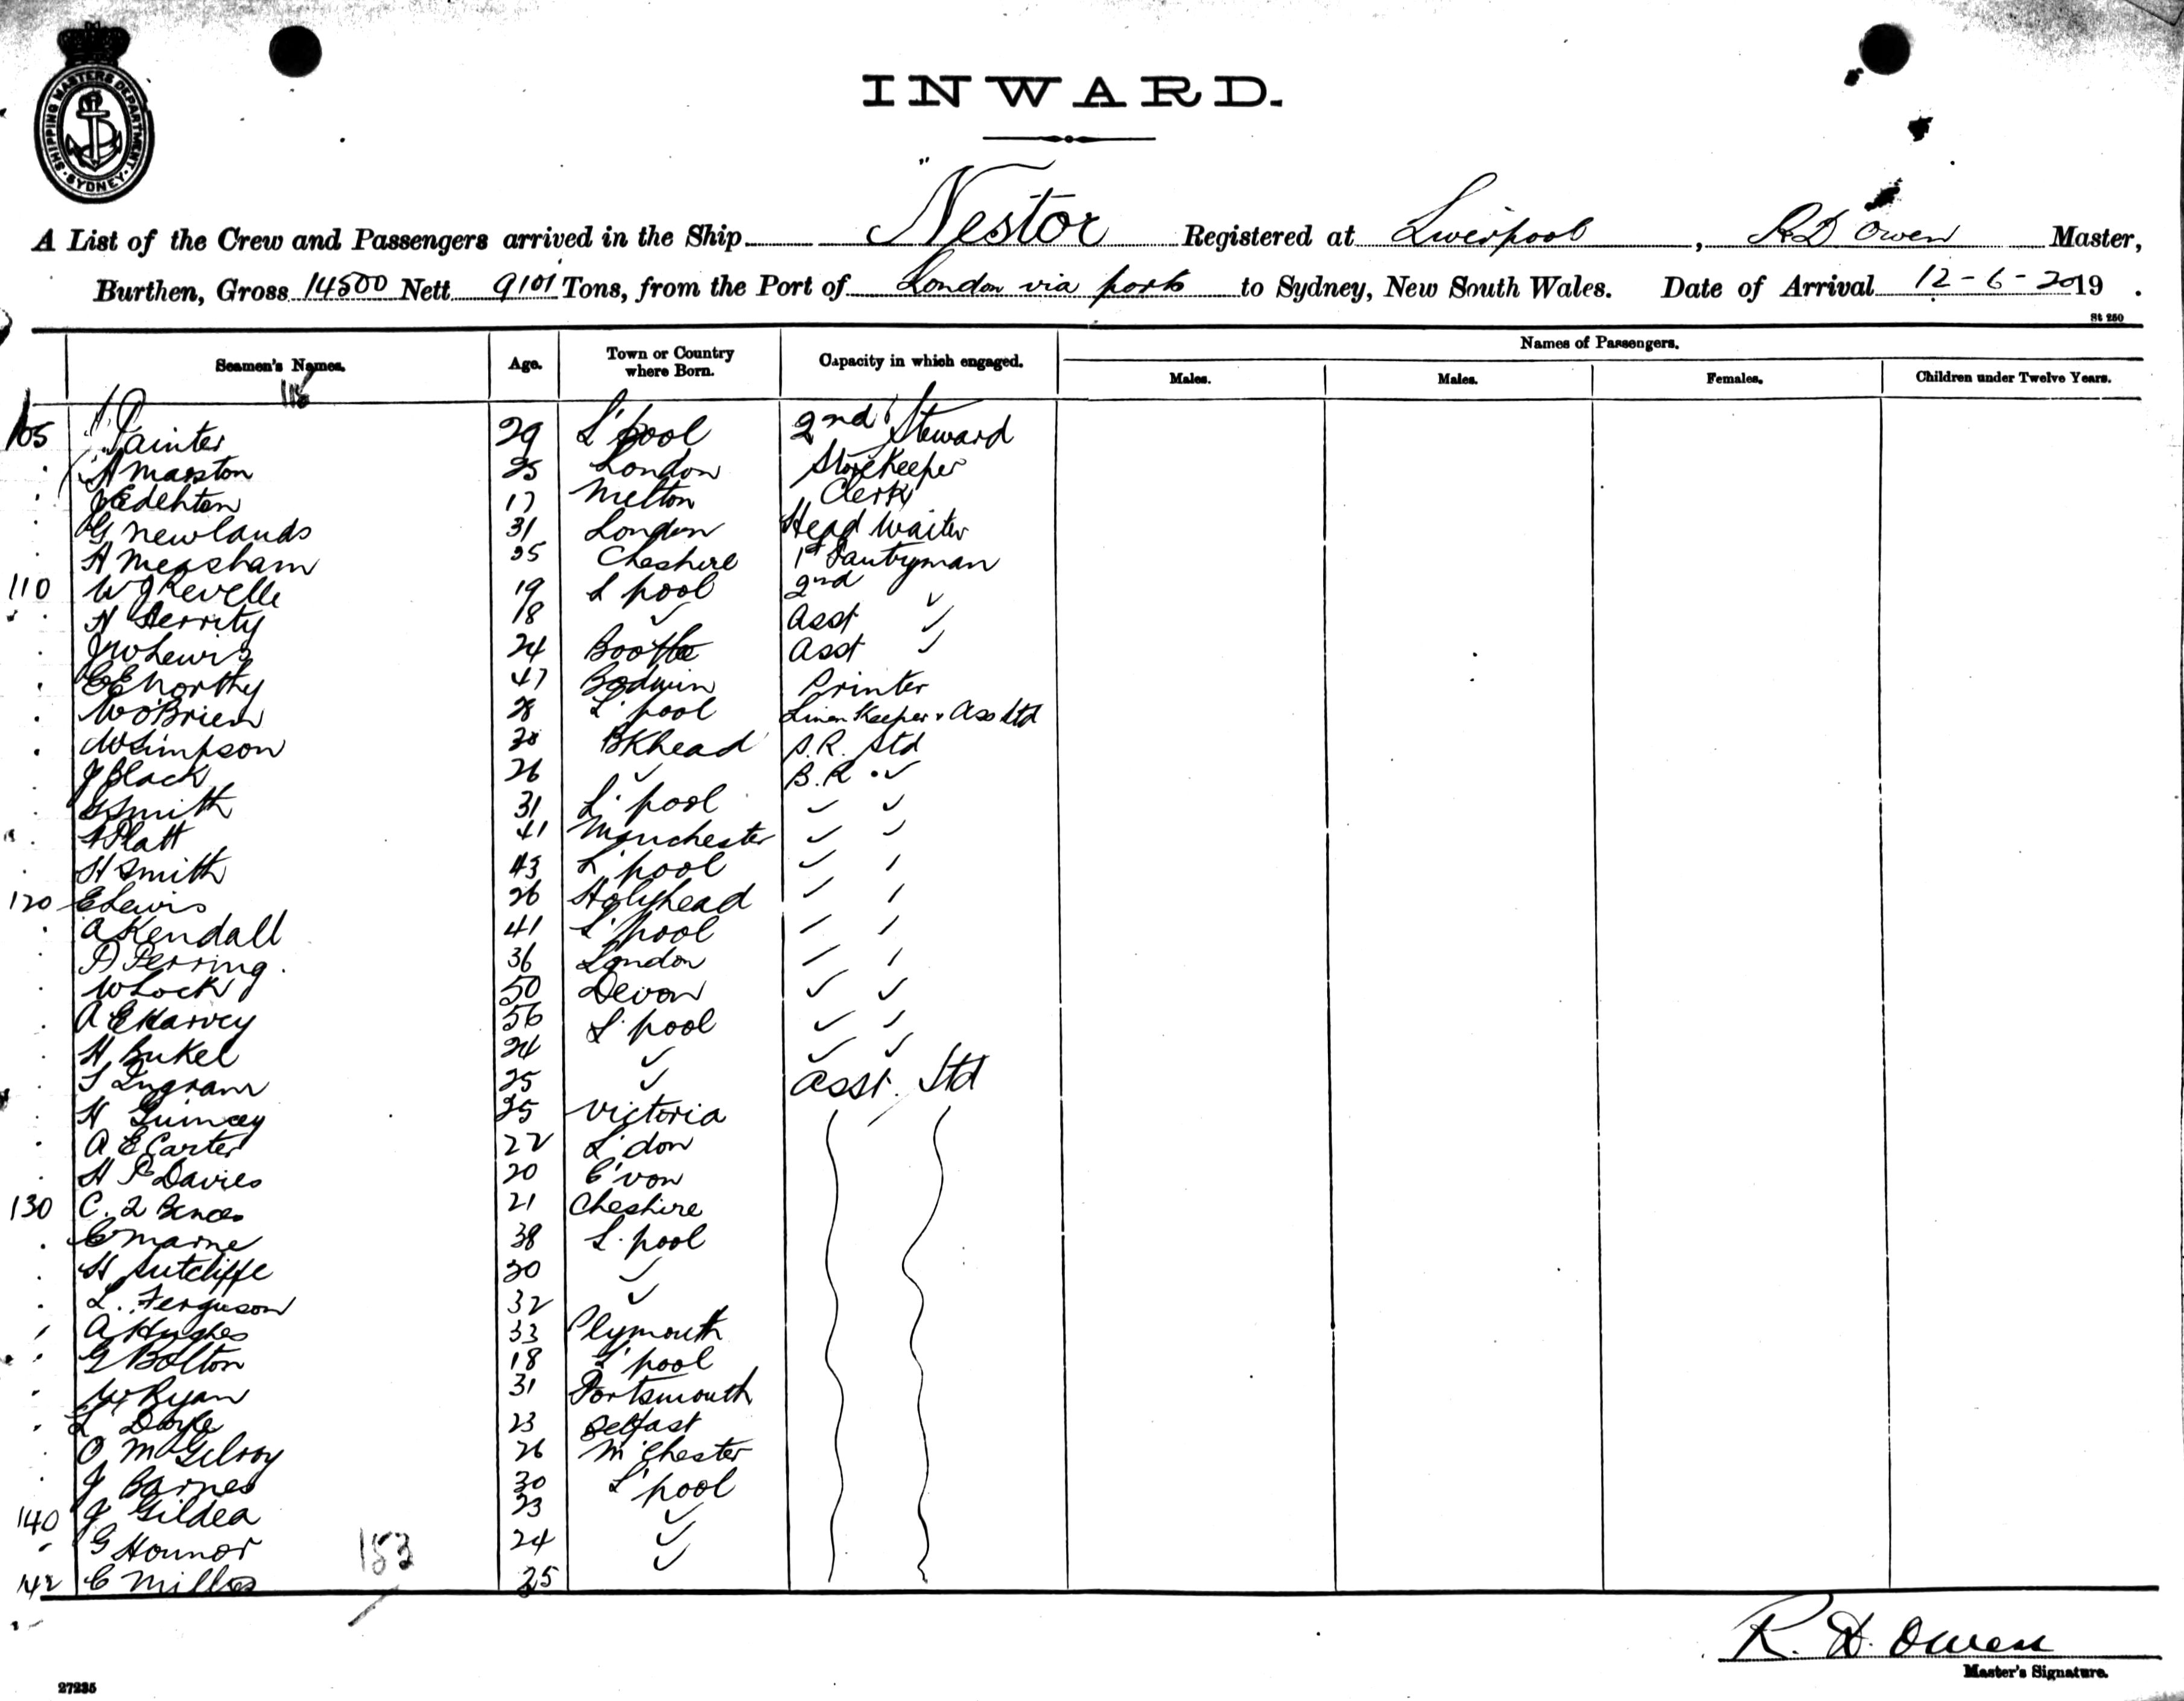 SHIPPING MASTERS DEPARTMENT SYDNEY
INWARD.
A List of the Crew and Passengers arrived in the Ship "Nestor Registered at Liverpool, RD Owen Master,
Burthen, Gross 14500 Nett 9101 Tons, from the Port of London via ports to Sydney, New South Wales. Date of Arrival 12-6-2019.
St 250
Seamen's Names. Age. Town or Country where Born. Capacity in which engaged. Names of Passengers.
Males. Males. Females. Children under Twelve Years.
105 Painter 29 L'pool 2nd Steward
A Marston 25 London Storekeeper
17 Melton Clerk
G Newlands 31 London Head Waiter
A Measham 35 Cheshire 1st Pantryman
110 W J Revelle 19 L'pool 2nd ✓
H Herrity 18 ✓ Asst ✓
J W Lewis 24 Bootle Asst ✓
Northy 47 Bodmin Printer
W O'Brien 28 L'pool Linen Keeper & Ass Std
W Simpson 38 BKhead S.R. Std
J Black 26 ✓ B.R. ✓
G Smith 31 L'pool ✓ ✓
A Platt 41 Manchester ✓ ✓
H Smith 43 L'pool ✓ ✓
120 E Lewis 26 Holyhead ✓ ✓
A Kendall 41 L'pool ✓ ✓
P Perring. 36 London ✓ ✓
W Lock 50 Devon ✓ ✓
A E Harvey 56 L'pool ✓ ✓
H Bukel 24 ✓ ✓ ✓
S Ingram 25 ✓ Asst. Std
H Quincey 25 Victoria
A E Carter 22 L'don
H P Davies 20 C'von
130 C. 21 Cheshire
C Marne 38 L'pool
H Sutcliffe 30 ✓
L. Ferguson 32 ✓
A Hughes 33 Plymouth
G Bolton 18 L'pool
W Ryan 31 Portsmouth
L Doyle 23 Belfast
O McGilroy 26 M'Chester
J Barnes 30 L'pool
140 J Gildea 23 ✓
G Hounor 24 ✓
142 C Milles 25 ✓
153
R. D. Owen
Master's Signature.
27235